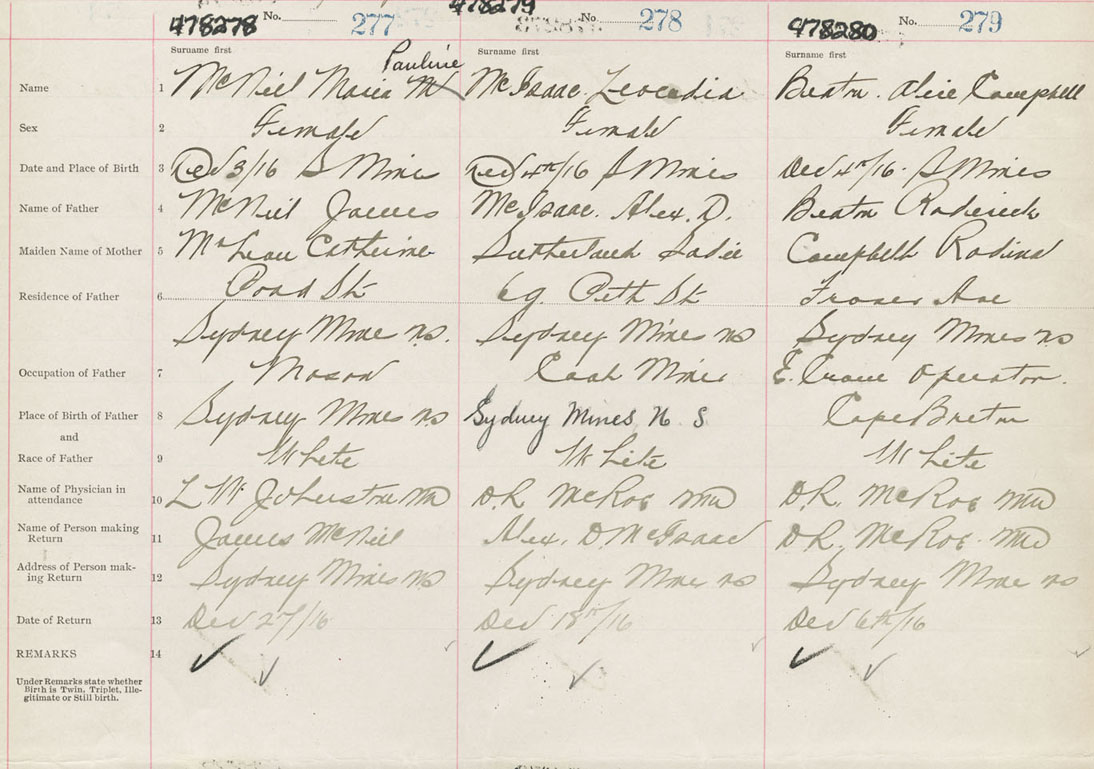 478278 No. 277 478279 No. 278 478280 No. 279
Surname first Surname first Surname first
Pauline
Name 1 McNeil Maria M McIsaac. Leocadia Beaton. Alice Campbell
Sex 2 Female Female Female
Date and Place of Birth 3 Dec 3/16 S Mines Dec 4th/16 S Mines Dec 4th/16. S Mines
Name of Father 4 McNeil James McIsaac. Alex. D. Beaton Roderick
Maiden Name of Mother 5 McLean Catherine Sutherland Sadie Campbell Rodena
Residence of Father 6 Pond St 69 Peth St Fraser Ave
Sydney Mines ns. Sydney Mines ns Sydney Mines ns
Occupation of Father 7 Mason Coal Miner E. Crane Operator.
Place of Birth of Father 8 Sydney Mines ns Sydney Mines N. S Cape Breton
and
Race of Father 9 White White White
Name of Physician in
attendance 10 L W Johnstone MD D.R. McRae MD D.R. McRae MD
Name of Person making
Return 11 James McNeil Alex. D. McIsaac D.R. McRae. MD
Address of Person mak-
ing Return 12 Sydney Mines ns Sydney Mines ns Sydney Mine ns
Date of Return 13 Dec 27/16 Dec 18th/16 Dec 6th/16
REMARKS 14
Under Remarks state whether
Birth is Twin, Triplet, Ille-
gitimate or Still birth.